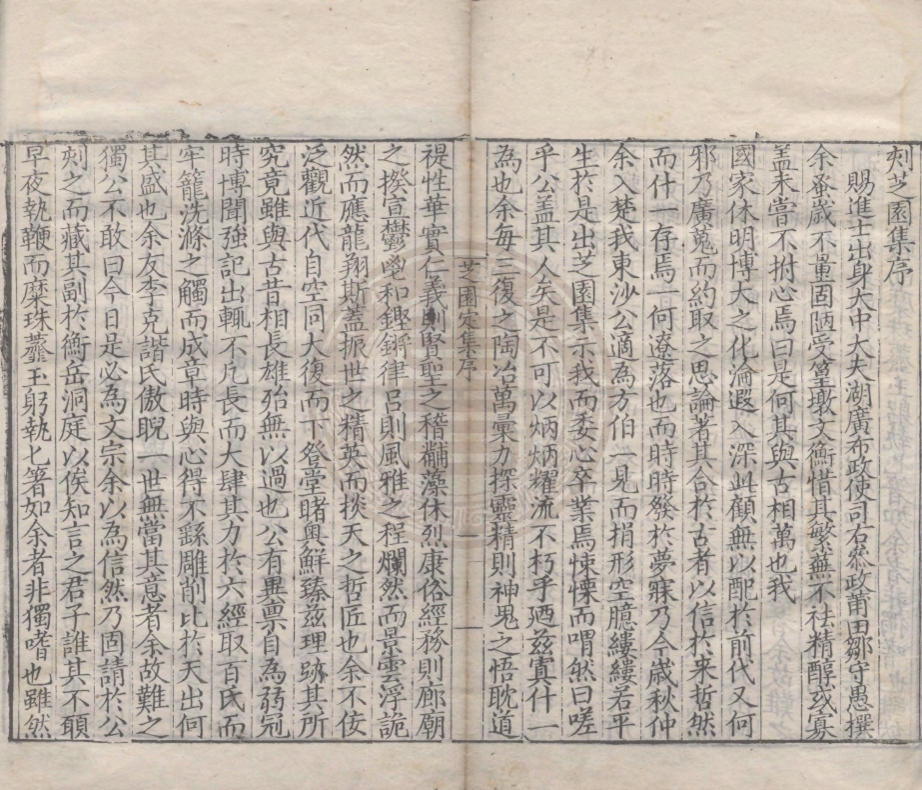 刻芝園集序
賜進士出身大中大夫湖廣布政使司右叅政莆田鄒守愚撰
余蚤歲不量固陋受篁墩文衡惜其繁蕪不袪精醇或寡
盖未嘗不拊心焉曰是何其與古相萬也我
國家休明博大之化淪遐入深此顧無以配於前代又何
邪乃廣蒐而約取之思論著其合於古者以信於来哲然
而什一存焉一何遼落也而時時發於夢寐乃今歲秋仲
余入楚我東沙公適為方伯一見而捐形空臆縷縷若平
生於是出芝園集示我而委心卒業焉悚慄而喟然曰嗟
乎公盖其人矣是不可以炳炳耀流不朽乎廼兹寘什一
為也余每三復之陶冶萬彙力探靈精則神鬼之悟耽道
芝園定集序
一
禔性華實仁義則賢聖之稽黼藻休烈康俗經務則廊廟
之揆宣鬱鬯和鏗鏘律呂則風雅之程爛然而景雲浮詭
然而應龍翔斯盖振世之精英而掞天之哲匠也余不佞
泛觀近代自空同大復而下登堂睹奧鮮臻兹理跡其所
究竟雖與古昔相長雄殆無以過也公有異禀自為弱冠
時博聞強記出輒不凡長而大肆其力於六經取百氏而
牢籠洗滌之觸而成章時與心得不繇雕削比於天出何
其盛也余友李克諧氏傲睨一世無當其意者余故難之
獨公不敢曰今日是必為文宗余以為信然乃固請於公
刻之而藏其副於衡岳洞庭以俟知言之君子誰其不願
早夜執鞭而糜珠虀玉躬執匕箸如余者非獨嗜也雖然